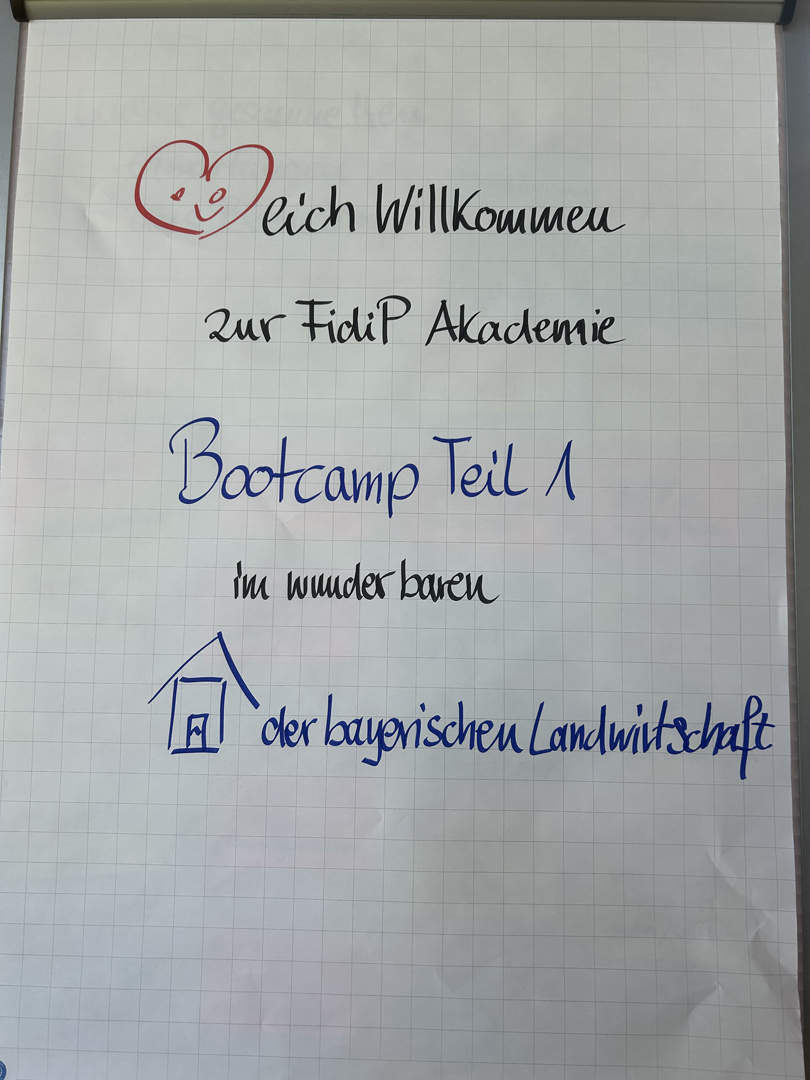 eich Willkommen
zur FidiP Akademie
Bootcamp Teil 1
im wunderbaren
der bayerischen Landwirtschaft